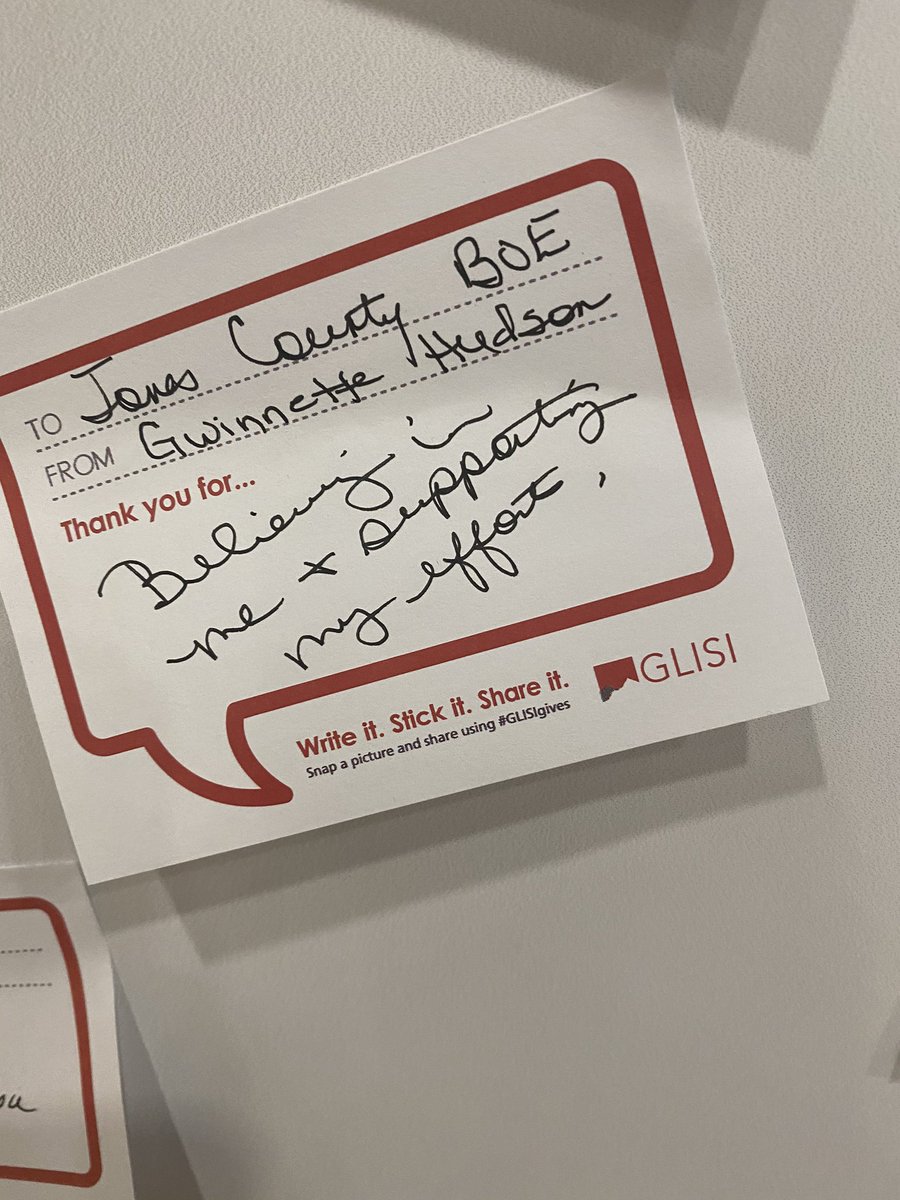 TO Jones County BOE
FROM Gwinnette Hudson
Thank you for...
Believing in
me & supporting
my efforts,
Write it. Stick it. Share it.
Snap a picture and share using #GLISIgives
GLISI